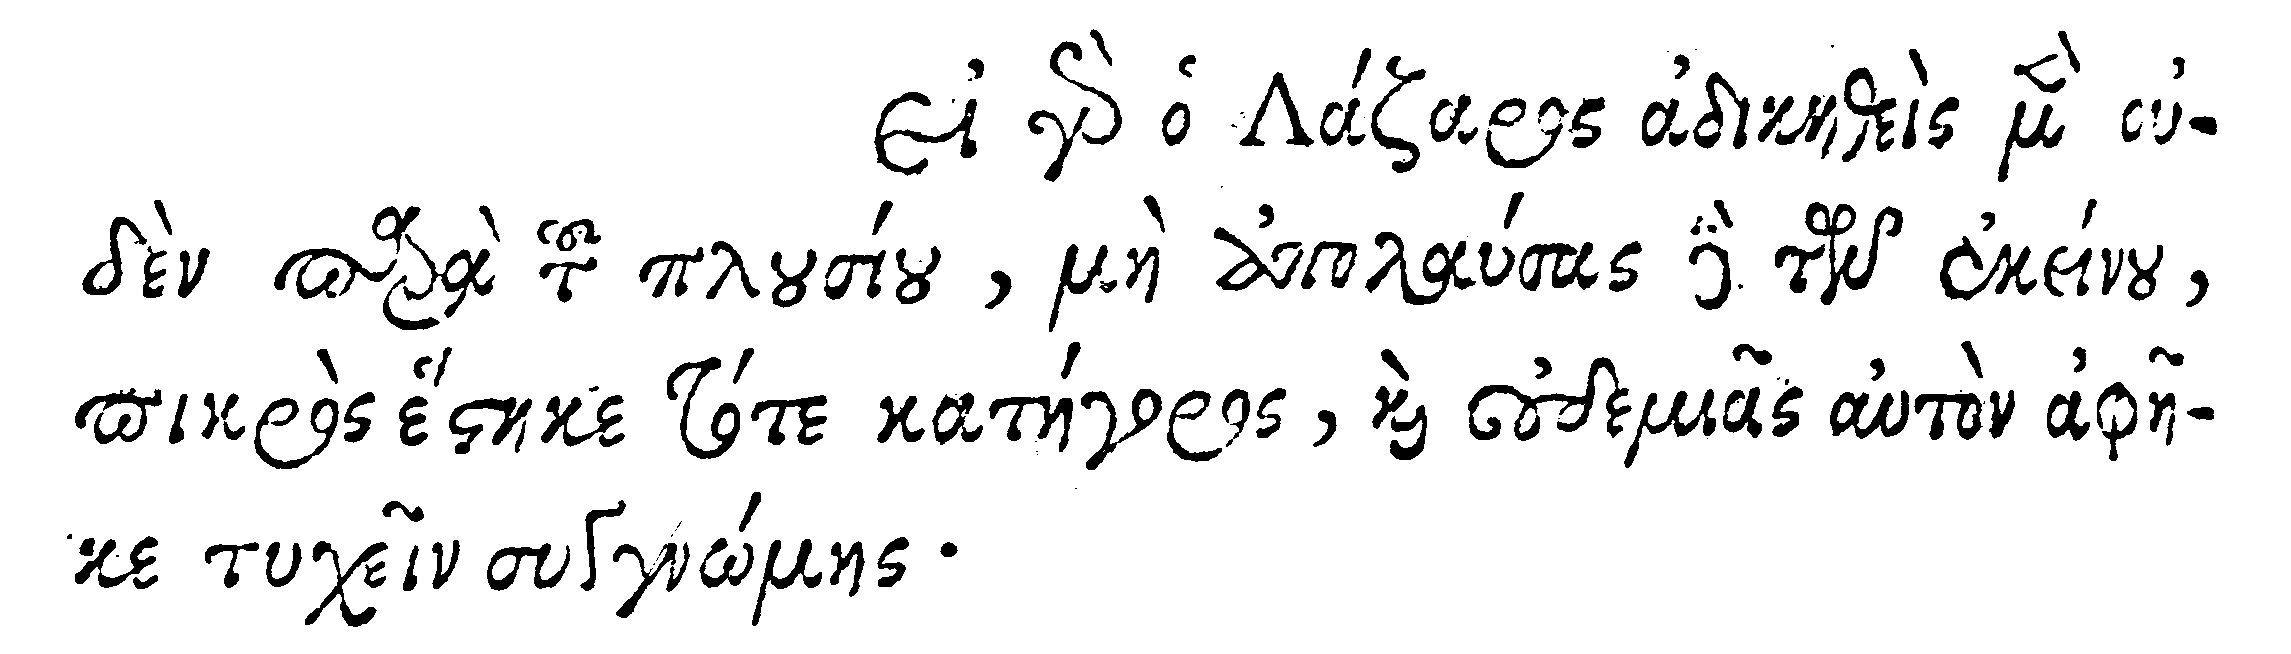 Εἰ γὰρ ὁ Λάζαρος ἀδικηθεὶς μὲν οὐ-
δὲν παρὰ τοῦ πλουσίου, μὴ ἀπολαύσας δὲ τῶν ἐκείνου,
πικρὸς ἕστηκε τότε κατήγορος, καὶ οὐδεμιᾶς αὐτὸν ἀφῆ-
κε τυχεῖν συγγνώμης.